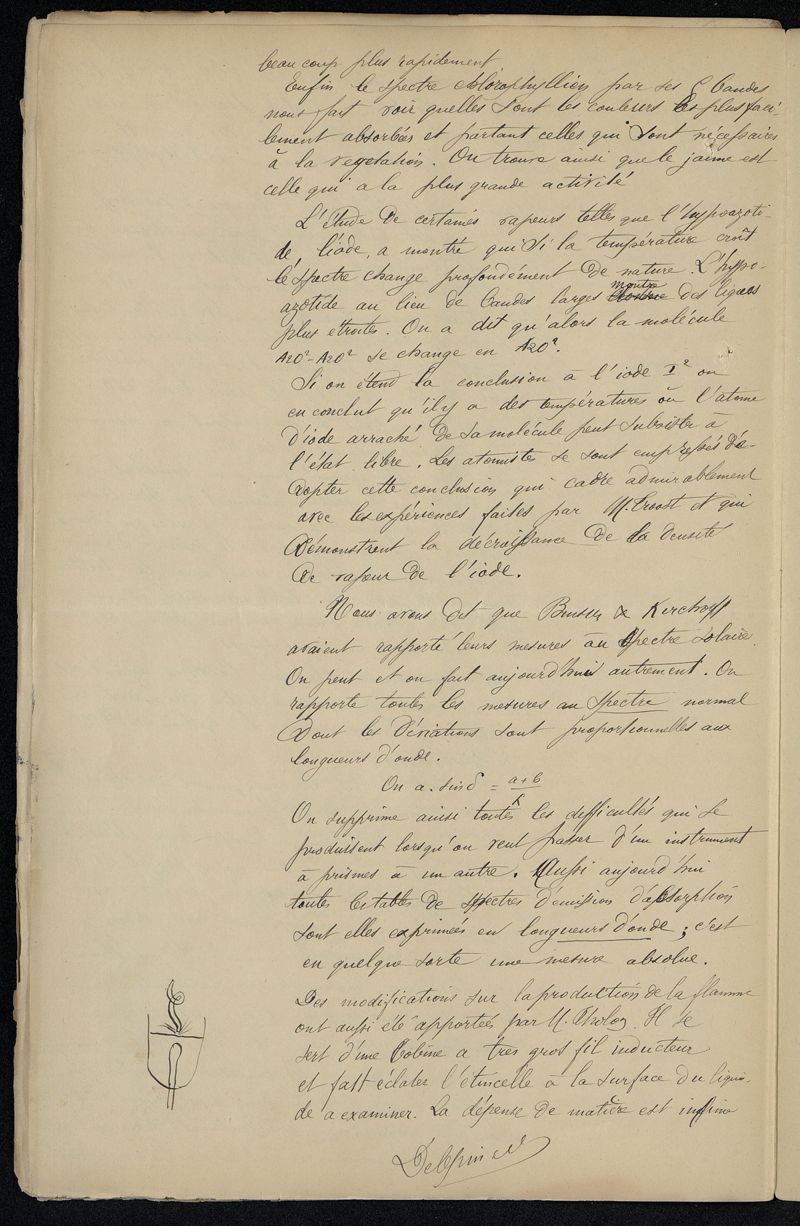 beaucoup plus rapidement
Enfin le spectre chlorophyllien par ses bandes
nous fait voir quelles sont les couleurs les plus faci-
lement absorbées et partant celles qui sont nécessaires
à la vegetation. On trouve ainsi que le jaune est
celle qui a la plus grande activité
L'étude de certaines vapeurs telles que l'hypoazoti-
de, l'iode, a montré que si la température croît
le spectre change profondément de nature. L'hypo-
azotide au lieu de bandes larges montre des lignes
plus étroites. On a dit qu'alors la molécule
AzO²-AzO² se change en AzO².
Si on étend la conclusion à l'iode I² on
en conclut qu'il y a des températures où l'atome
d'iode arraché de sa molécule peut subsister à
l'état libre. Les atomistes se sont empressés d'a-
dopter cette conclusion qui cadre admirablement
avec les expériences faites par M. Troost et qui
démontrent la décroissance de la densité
de vapeur de l'iode.
Nous avons dit que Bunsen & Kirchoff
avaient rapporté leurs mesures au spectre solaire.
On peut et on fait aujourd'hui autrement. On
rapporte toutes les mesures au spectre normal
dont les déviations sont proportionnelles aux
longueurs d'onde.
On a. sin δ = a+b / λ
On supprime ainsi toutes les difficultés qui se
produisent lorsqu'on veut passer d'un instrument
à prismes à un autre. Aussi aujourd'hui
toutes les tables de spectres d'émission d'absorption
sont elles exprimées en longueurs d'onde ; c'est
en quelque sorte une mesure absolue.
Des modifications sur la production de la flamme
ont aussi été apportées par M. Il se
sert d'une bobine a tres gros fil inducteur
et fait éclater l'étincelle à la surface du liqui-
de a examiner. La dépense de matière est infime